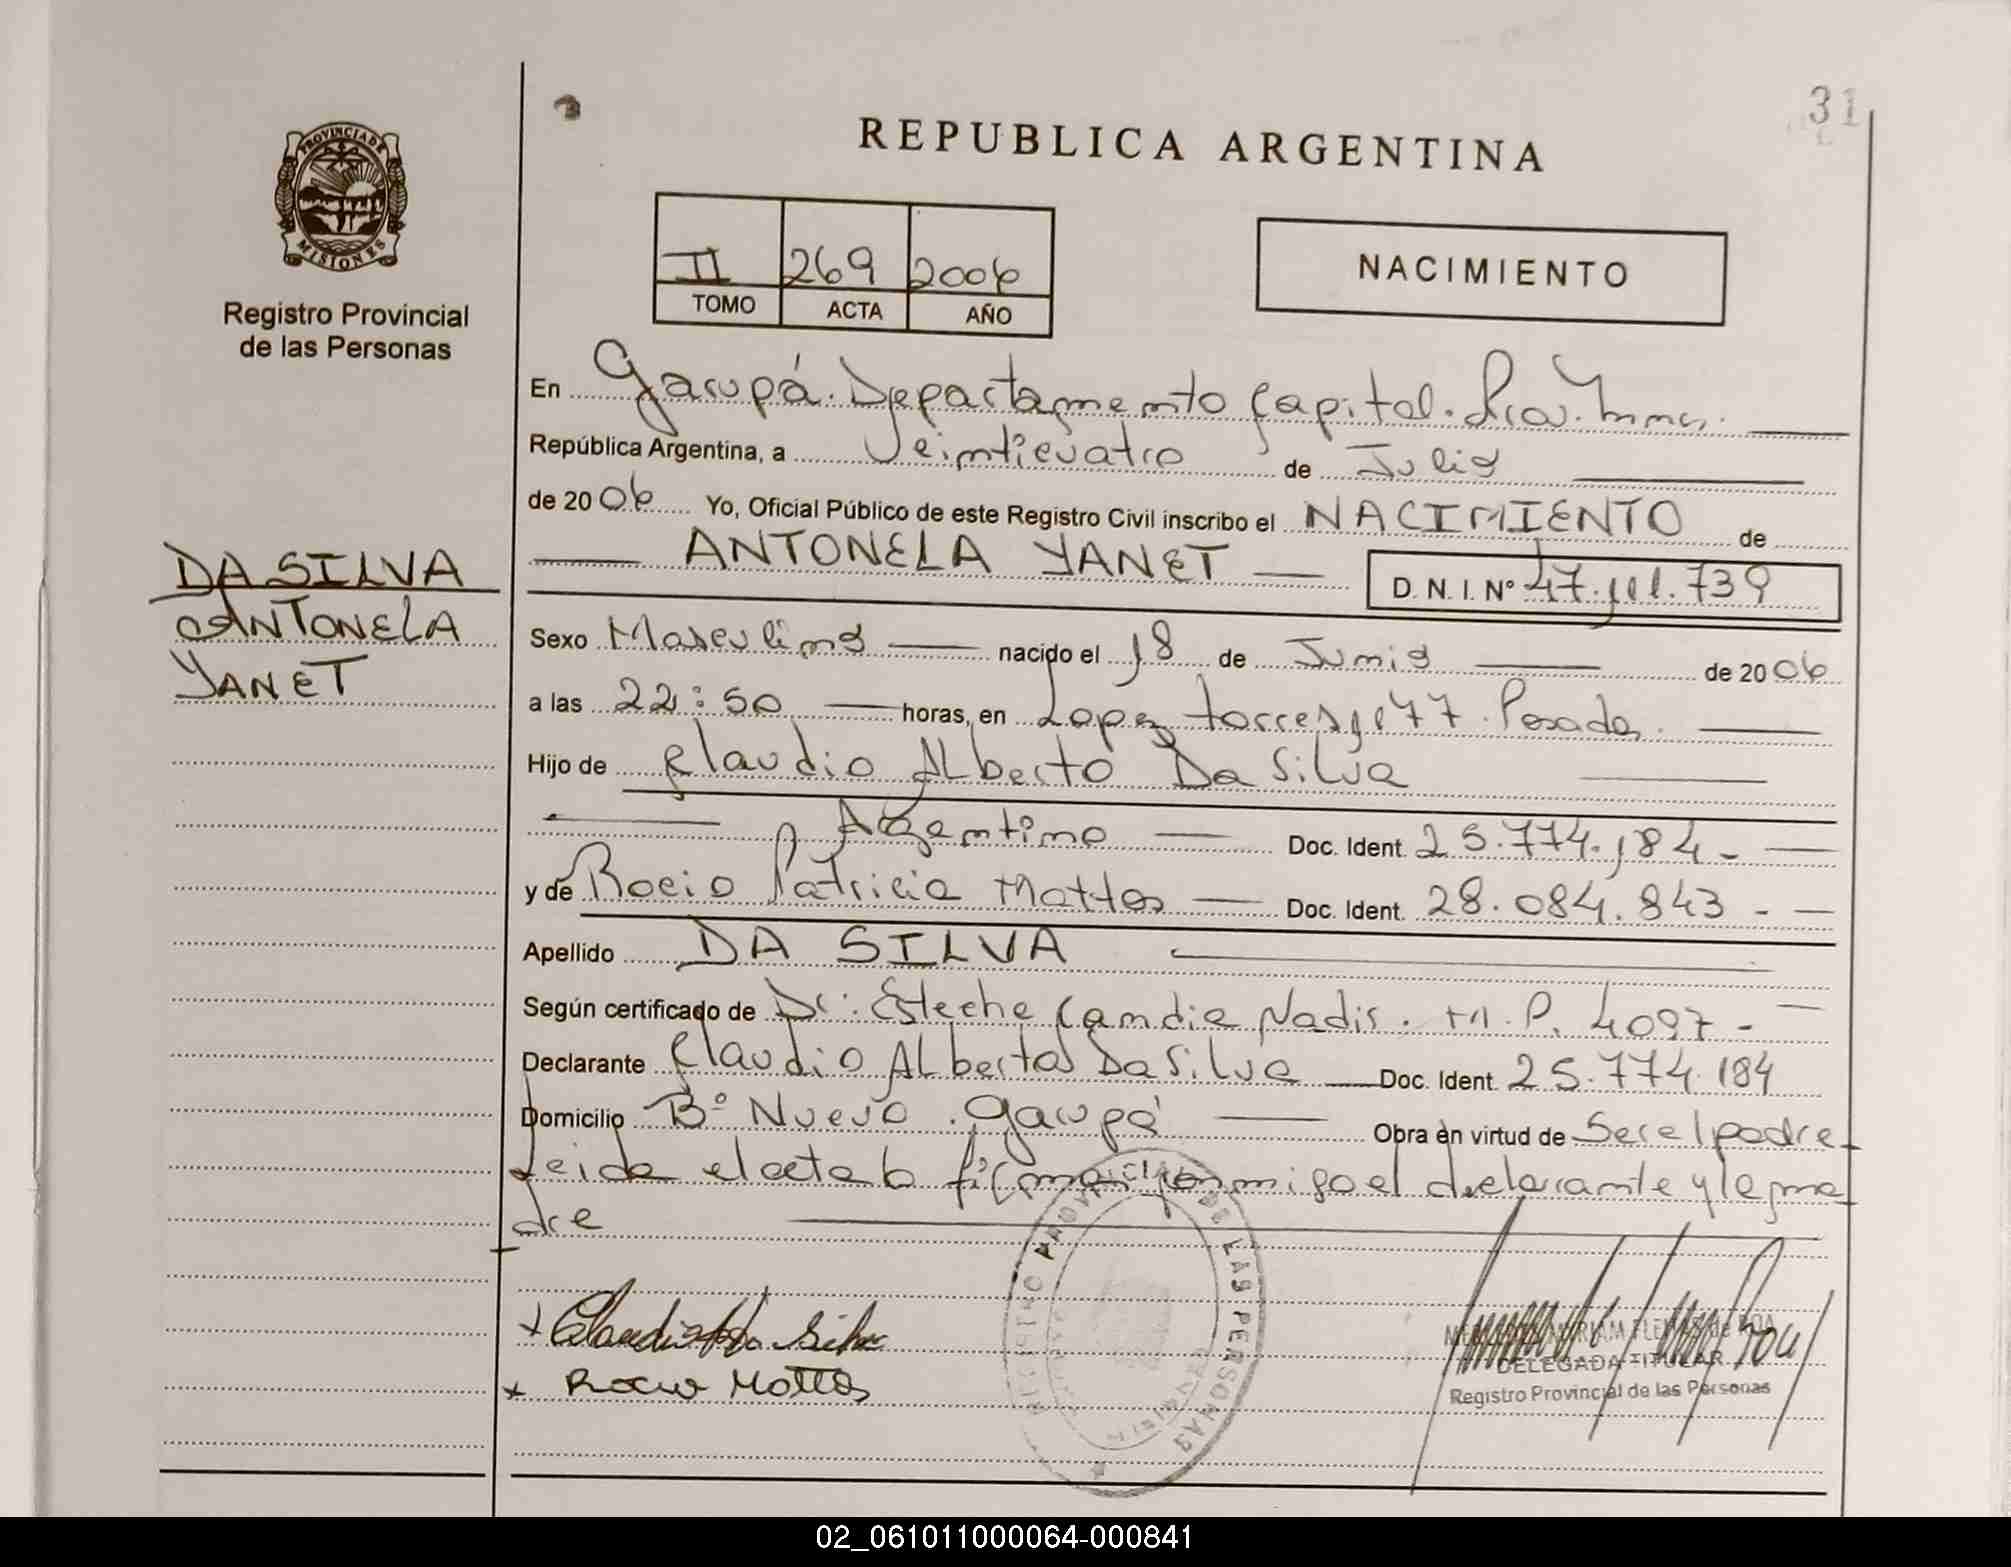 31
REPUBLICA ARGENTINA
PROVINCIA DE MISIONES
Registro Provincial
de las Personas
II 269 2006
TOMO ACTA AÑO
NACIMIENTO
En Garupá. Departamento Capital.
República Argentina, a Veinticuatro de Julio
de 2006 Yo, Oficial Público de este Registro Civil inscribo el NACIMIENTO de
ANTONELA YANET D.N.I. Nº 47.111.739
DA SILVA
ANTONELA
YANET
Sexo Masculino nacido el 18 de Junio de 2006
a las 22:50 horas, en Lopez torres 1177. Posadas.
Hijo de Claudio Alberto Da Silva
Argentino Doc. Ident. 25.774.184-
y de Rocio Patricia Mattos Doc. Ident. 28.084.843-
Apellido DA SILVA
Según certificado de Dr: Esteche Candia Nadis. M.P. 4097-
Declarante Claudio Alberto Da Silva Doc. Ident. 25.774.184
Domicilio Bº Nuevo. Garupá Obra en virtud de Ser el padre
Leida el acta la firman conmigo el declarante y la ma
dre
Rocio Mattos
REGISTRO PROVINCIAL DE LAS PERSONAS
MISIONES
DELEGADA TITULAR
Registro Provincial de las Personas
02_061011000064-000841